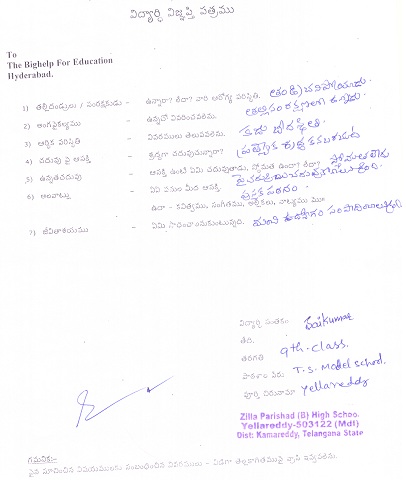 విద్యార్థి విజ్ఞప్తి పత్రము
To
The Bighelp For Education
Hyderabad.
1) తల్లిదండ్రులు / సంరక్షకుడు - ఉన్నారా? లేదా? వారి ఆరోగ్య పరిస్థితి. (తండ్రి) చనిపోయాడు.
తల్లి సంరక్షణలో ఉన్నాడు.
2) అంగవైకల్యము - ఉన్నచో వివరించవలెను.
3) ఆర్థిక పరిస్థితి - వివరములు తెలుపవలెను. కడు బీదస్థితి.
4) చదువు పై ఆసక్తి - శ్రద్ధగా చదువుచున్నారా?
5) ఉన్నతచదువు - ఆసక్తి ఉంటే ఏమి చదువుతాడు, స్తోమత ఉందా? లేదా? స్తోమత లేదు
6) అలవాట్లు - ఏవి పనుల మీద ఆసక్తి. పుస్తక పఠనం.
ఉదా - కవిత్వము, సంగీతము, అల్లికలు, నాట్యము
7) జీవితాశయము - ఏమి సాధించాలనుకుంటున్నది. మంచి ఉద్యోగం సంపాదించాలన్నది.
విద్యార్థి సంతకం Saikumar
తేది.
తరగతి 9th-class.
పాఠశాల పేరు T.S. Model school.
పూర్తి చిరునామా Yellareddy
Zilla Parishad (B) High School
Yellareddy-503122 (Mdl)
Dist: Kamareddy, Telangana State
గమనిక:-
పైన సూచించిన విషయములకు సంబంధించిన వివరములు - విడిగా తెల్లకాగితముపై వ్రాసి ఇవ్వవలెను.